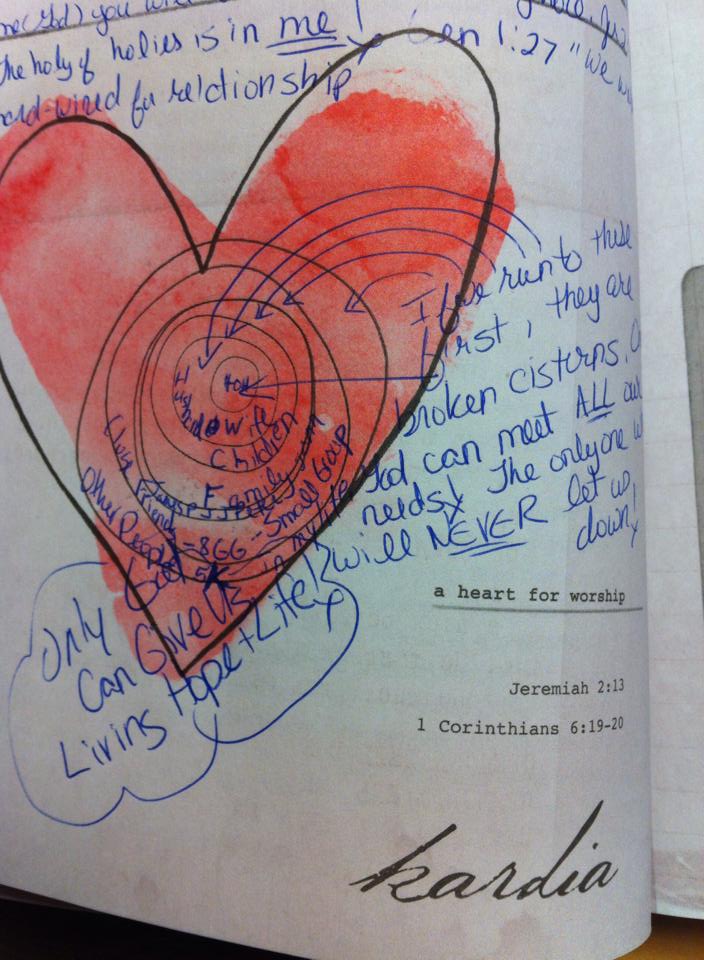 you
the holy of holies is in me! Gen 1:27 "we
hard-wired for relctionship
If we run to these
first, they are
broken cisterns.
God can meet ALL our
needs! The only one
will NEVER let us
down!
Husband
wife
Children
Family
Close Friends
Small Group
Other People
Only God
Can Give Us
Living Hope + Life!
a heart for worship
Jeremiah 2:13
1 Corinthians 6:19-20
kardia